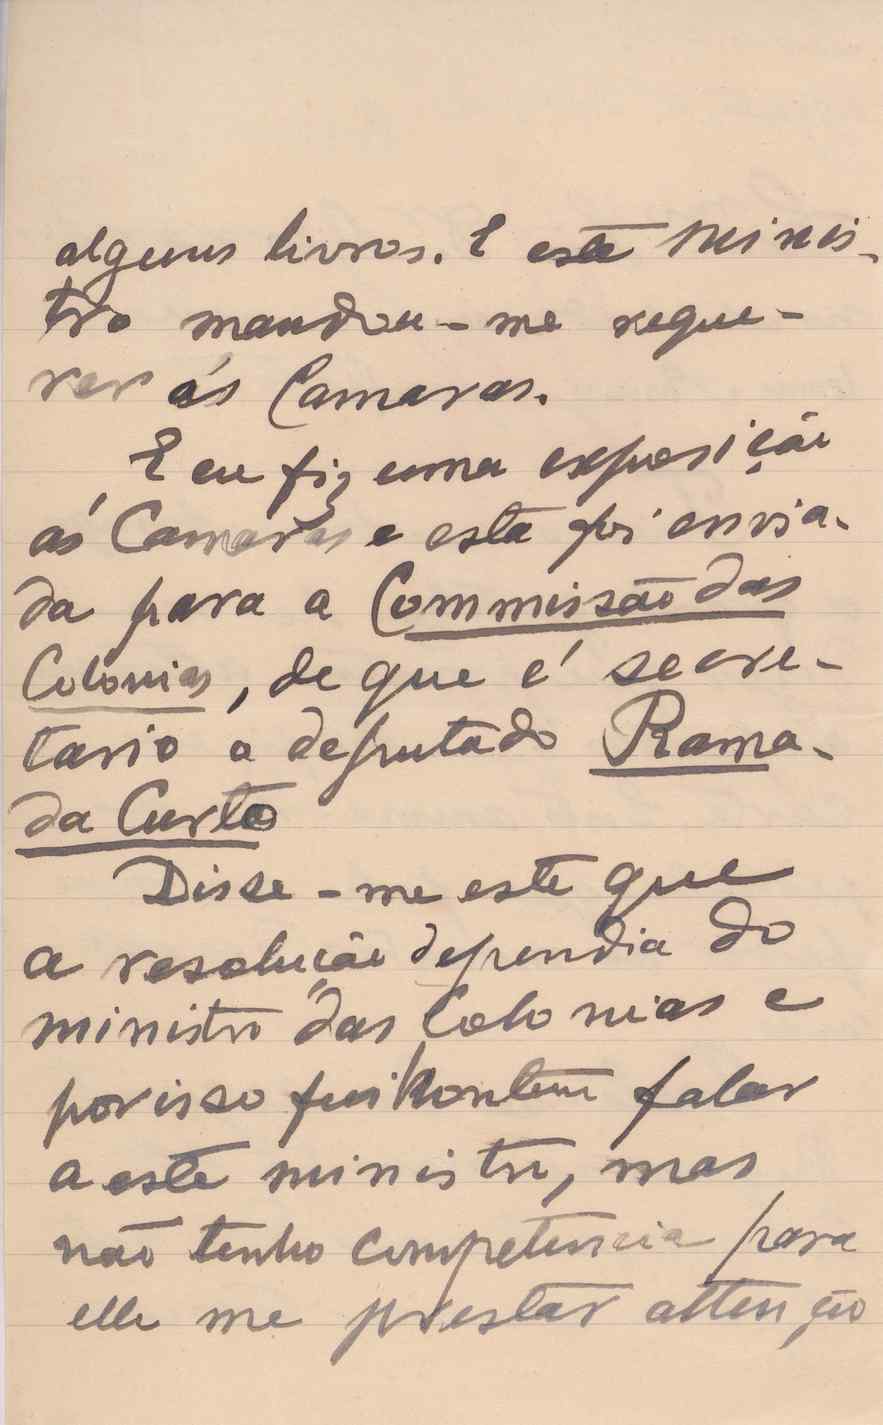 alguns livros. E este minis-
tro mandou-me reque-
rer ás Camaras.
E eu fiz uma exposição
ás Camaras e esta foi envia-
da para a Commissão das
Colonias, de que é secre-
tario o deputado Rama-
da Curto
Disse-me este que
a resolução dependia do
ministro das Colonias e
por isso fui hontem falar
a este ministro, mas
não tenho competencia para
elle me prestar attenção